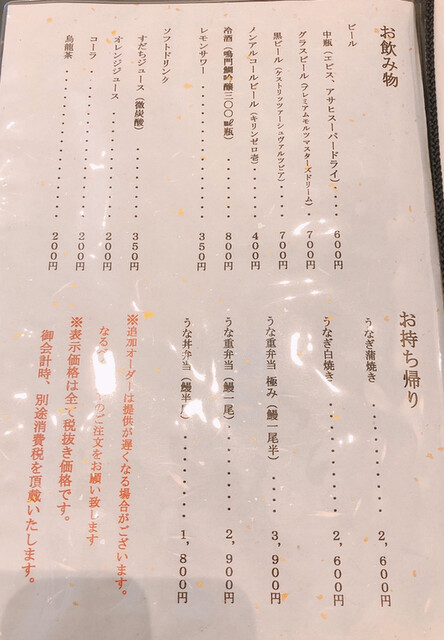 お飲み物
ビール
中瓶(エビス、アサヒスーパードライ)・・・600円
グラスビール(プレミアムモルツマスターズドリーム)・・700円
黒ビール(ケストリッツァーシュヴァルツビア)・・・・700円
ノンアルコールビール(キリンゼロ壱)・・・・・・400円
冷酒(鳴門鯛吟醸三〇〇㎖瓶)・・・・・・・800円
レモンサワー・・・・・・・・・・・・・350円
ソフトドリンク
すだちジュース(微炭酸)・・・・・・・・350円
オレンジジュース・・・・・・・・・・・200円
コーラ・・・・・・・・・・・・・・・・200円
烏龍茶・・・・・・・・・・・・・・・・200円
お持ち帰り
うなぎ蒲焼き・・・・・・・・・・2,600円
うなぎ白焼き・・・・・・・・・・2,600円
うな重弁当 極み(鰻一尾半)・・・・3,900円
うな重弁当(鰻一尾)・・・・・・・2,900円
うな丼弁当(鰻半尾)・・・・・・・1,800円
※追加オーダーは提供が遅くなる場合がございます。
なるべ のご注文をお願い致します
※表示価格は全て税抜き価格です。
御会計時、別途消費税を頂戴いたします。